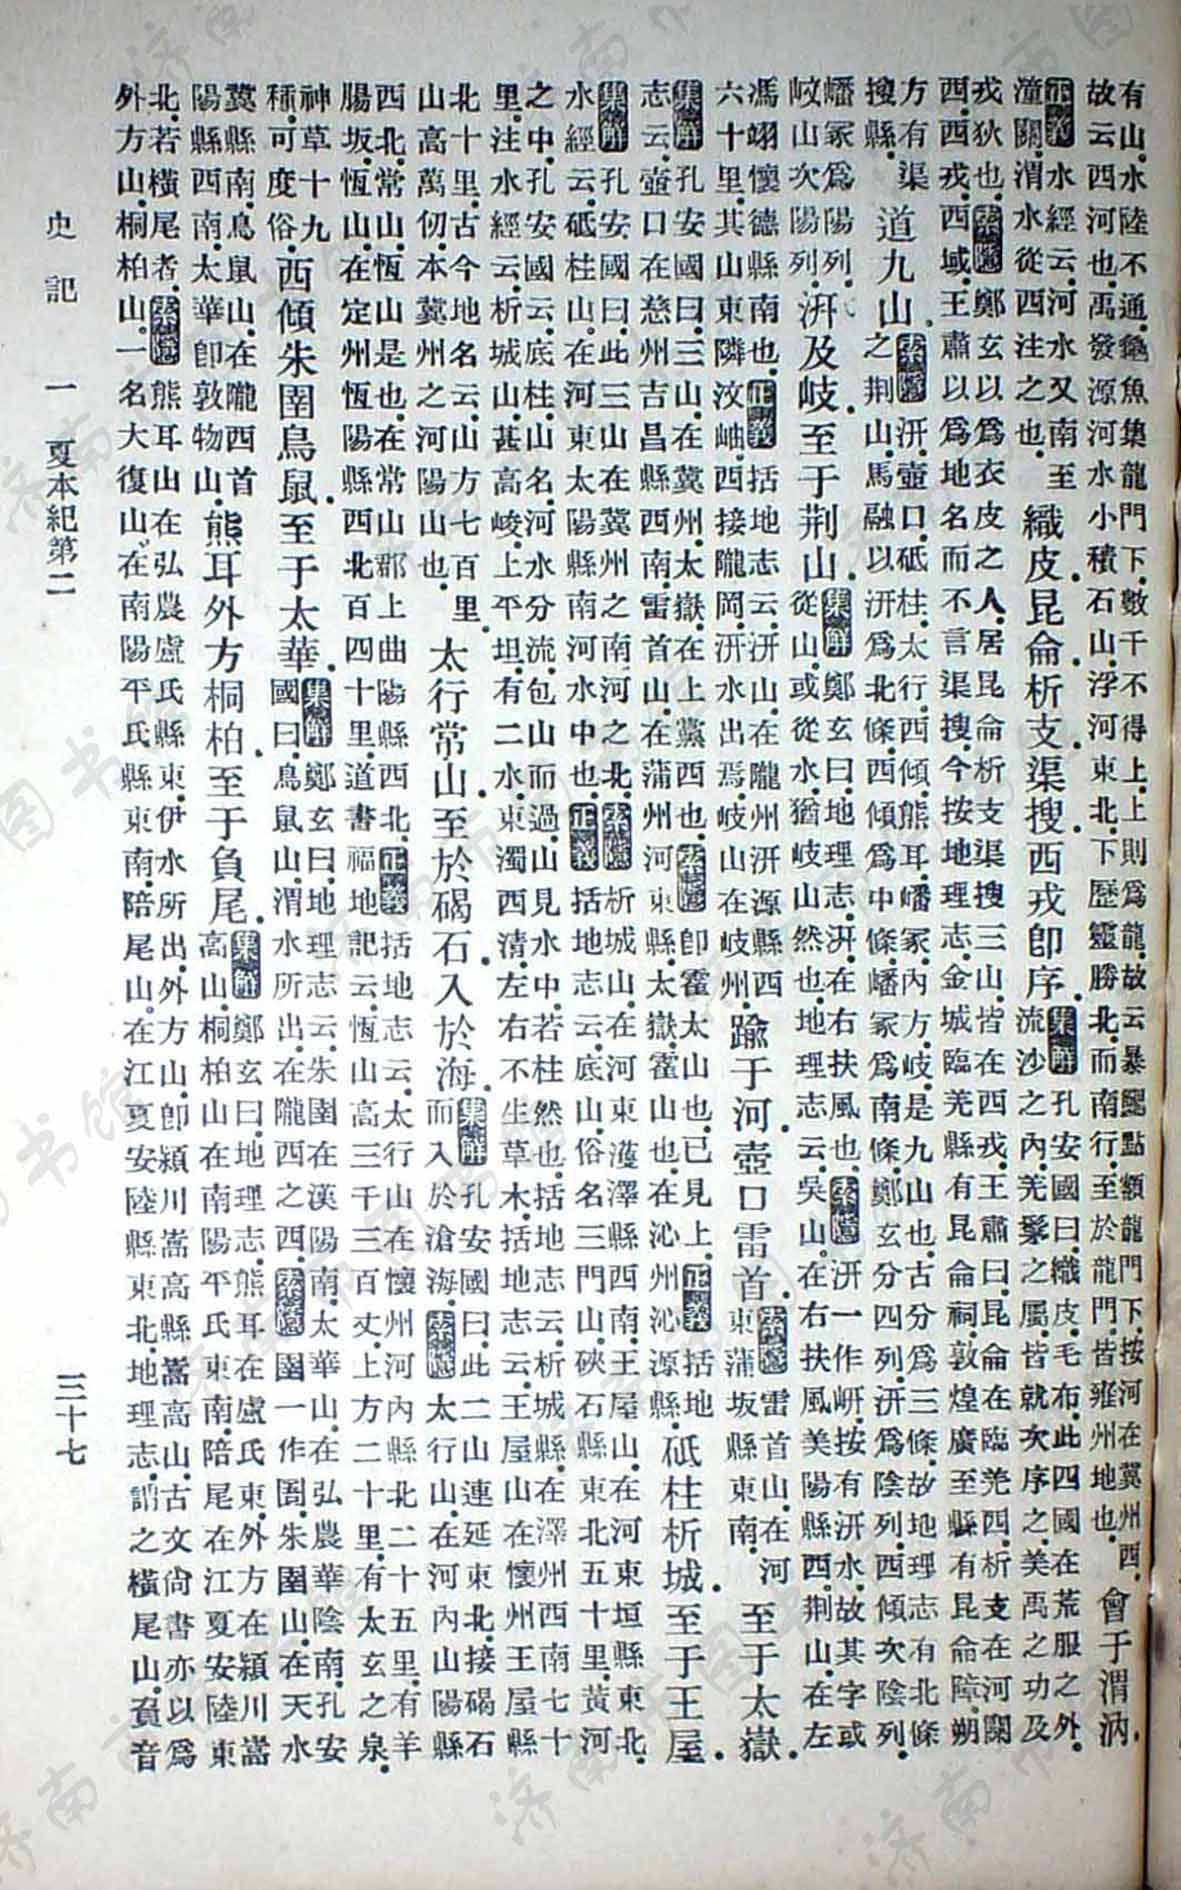 有山水陸不通龜魚集龍門下數千不得上上則爲龍故云暴鰓點額龍門下按河在冀州西
故云西河也禹發源河水小積石山浮河東北下歷靈勝北而南行至於龍門皆雍州地也
會于渭汭
正義水經云河水又南至
潼關渭水從西注之也
織皮昆侖析支渠搜西戎卽序
集解孔安國曰織皮毛布此四國在荒服之外
流沙之內羌髳之屬皆就次序之美禹之功及
戎狄也索隱鄭玄以爲衣皮之人居昆侖析支渠搜三山皆在西戎王肅曰昆侖在臨羌西析支在河關
西西戎西域王肅以爲地名而不言渠搜今按地理志金城臨羌縣有昆侖祠敦煌廣至縣有昆侖障朔
方有渠
搜縣
道九山
索隱汧壺口砥柱太行西傾熊耳嶓冢內方岐是九山也古分爲三條故地理志有北條
之荆山馬融以汧爲北條西傾爲中條嶓冢爲南條鄭玄分四列汧爲陰列西傾次陰列
嶓冢爲陽列
岐山次陽列
汧及岐至于荆山
集解鄭玄曰地理志汧在右扶風也索隱汧一作岍按有汧水故其字或
從山或從水猶岐山然也地理志云吳山在右扶風美陽縣西荆山在左
馮翊懷德縣南也正義括地志云汧山在隴州汧源縣西
六十里其山東隣汶岫西接隴岡汧水出焉岐山在岐州
踰于河壺口雷首
索隱雷首山在河
東蒲坂縣東南
至于太嶽
集解孔安國曰三山在冀州太嶽在上黨西也索隱卽霍太山也已見上正義括地
志云壺口在慈州吉昌縣西南雷首山在蒲州河東縣太嶽霍山也在沁州沁源縣
砥柱析城至于王屋
集解孔安國曰此三山在冀州之南河之北索隱析城山在河東濩澤縣西南王屋山在河東垣縣東北
水經云砥柱山在河東太陽縣南河水中也正義括地志云底山俗名三門山硤石縣東北五十里黃河
之中孔安國云底柱山名河水分流包山而過山見水中若柱然也括地志云析城縣在澤州西南七十
里注水經云析城山甚高峻上平坦有二水東濁西清左右不生草木括地志云王屋山在懷州王屋縣
北十里古今地名云山方七百里
山高萬仞本冀州之河陽山也
太行常山至於碣石入於海
集解孔安國曰此二山連延東北接碣石
而入於滄海索隱太行山在河內山陽縣
西北常山恆山是也在常山郡上曲陽縣西北正義括地志云太行山在懷州河內縣北二十五里有羊
腸坂恆山在定州恆陽縣西北百四十里道書福地記云恆山高三千三百丈上方二十里有太玄之泉
神草十九
種可度俗
西傾朱圉鳥鼠至于太華
集解鄭玄曰地理志云朱圉在漢陽南太華山在弘農華陰南孔安
國曰鳥鼠山渭水所出在隴西之西索隱圉一作圄朱圉山在天水
冀縣南鳥鼠山在隴西首
陽縣西南太華卽敦物山
熊耳外方桐柏至于負尾
集解鄭玄曰地理志熊耳在盧氏東外方在潁川嵩
高山桐柏山在南陽平氏東南陪尾在江夏安陸東
北若橫尾者索隱熊耳山在弘農盧氏縣東伊水所出外方山卽潁川嵩高縣嵩高山古文尙書亦以爲
外方山桐柏山一名大復山在南陽平氏縣東南陪尾山在江夏安陸縣東北地理志謂之橫尾山負音
史記 一 夏本紀第二 三十七
济南市图书馆